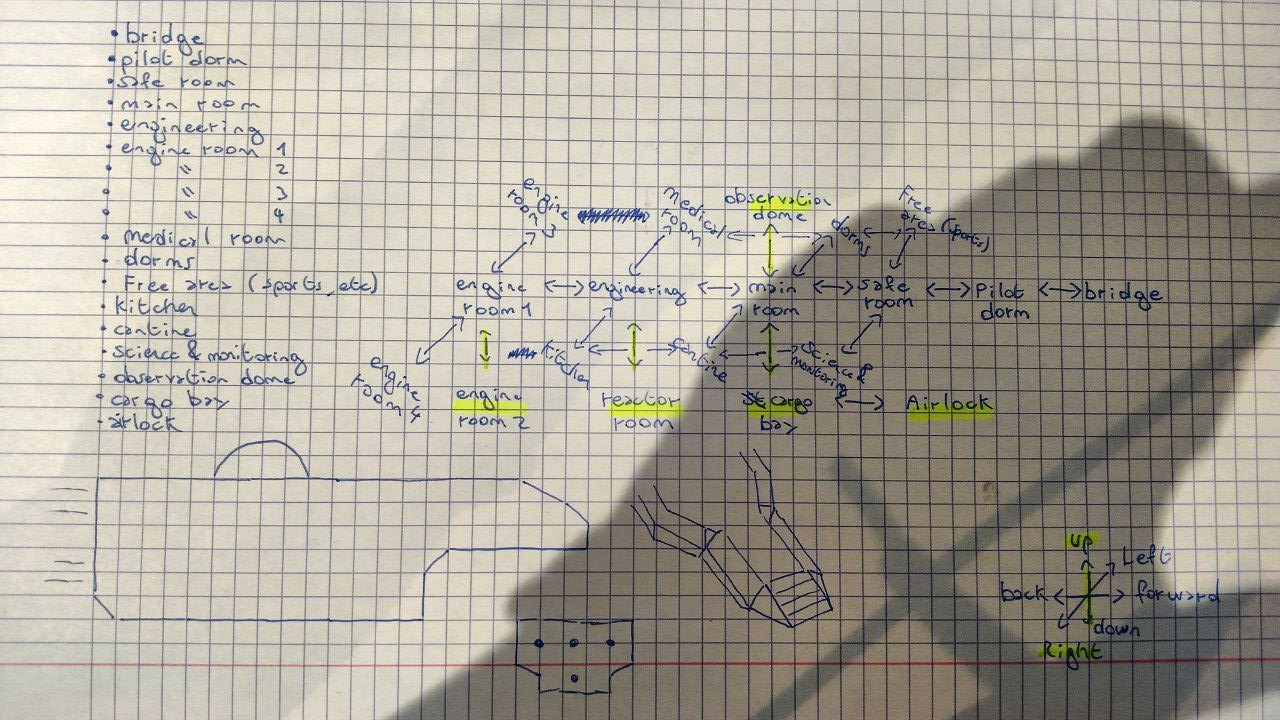 • bridge
• pilot dorm
• safe room
• main room
• engineering
• engine room 1
• " 2
• " 3
• " 4
• medical room
• dorms
• Free area (sports, etc)
• Kitchen
• cantine
• science & monitoring
• observation dome
• cargo bay
• airlock
engine
room 3
Medical
room
observation
dome
dorms
Free
area (sports)
engine
room 1
engineering
main
room
safe
room
Pilot
dorm
bridge
engine
room 4
Kitchen
Cantine
Science &
monitoring
engine
room 2
reactor
room
cargo
bay
Airlock
up
Left
back
forward
down
Right